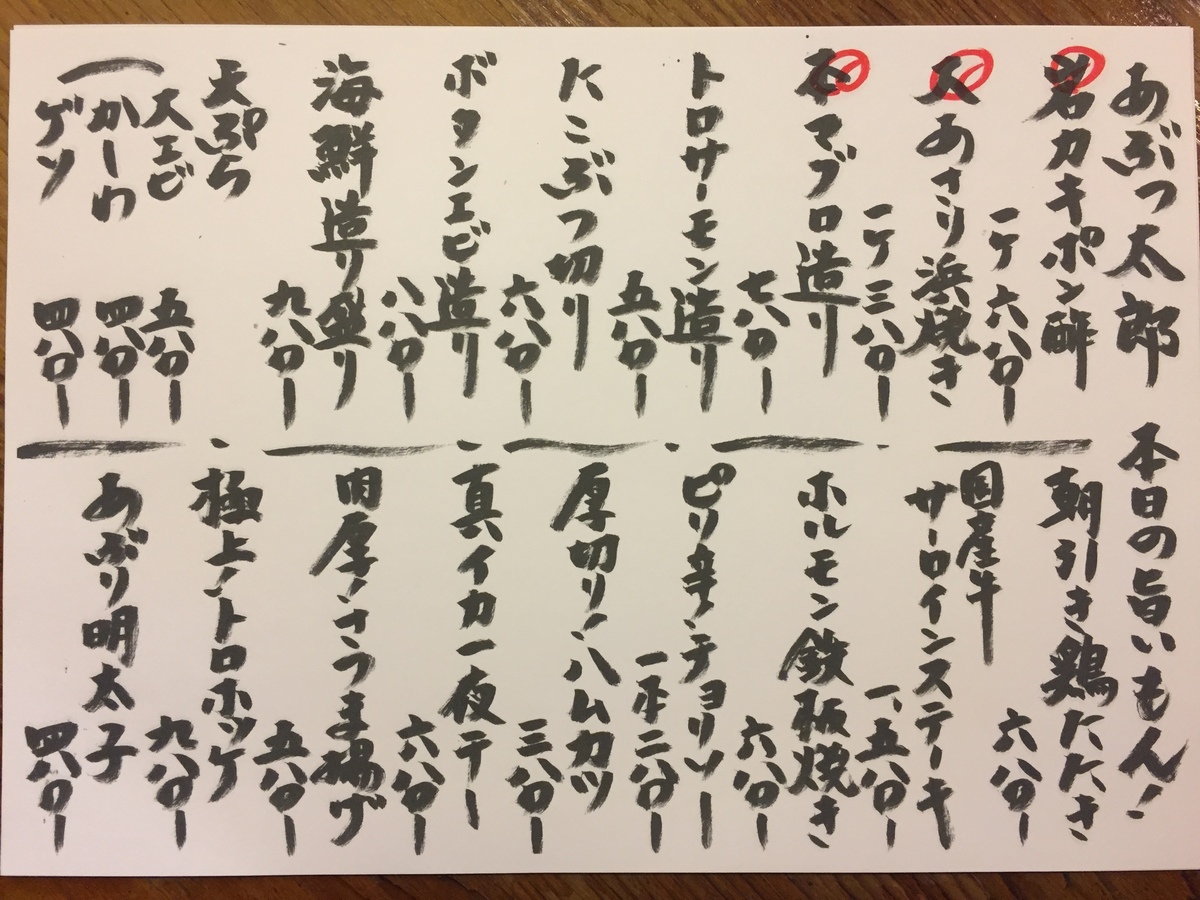 あぶつ太郎
本日の旨いもん！
岩カキポン酢
一ケ 六八〇ー
大あさり浜焼き
一ケ 三八〇ー
本マグロ造り
七八〇ー
トロサーモン造り
五八〇ー
たこぶつ切り
六八〇ー
ボタンエビ造り
八八〇ー
海鮮造り盛り
九八〇ー
天ぷら
大エビ 五八〇ー
かしわ 四八〇ー
ゲソ 四八〇ー
朝引き鶏たたき
六八〇ー
国産牛
サーロインステーキ
一、五八〇ー
ホルモン鉄板焼き
六八〇ー
ピリ辛！チョリソー
一本 二八〇ー
厚切り！ハムカツ
三八〇ー
真イカ一夜干し
六八〇ー
肉厚！さつま揚げ
五八〇ー
極上！トロホッケ
九八〇ー
あぶり明太子
四八〇ー